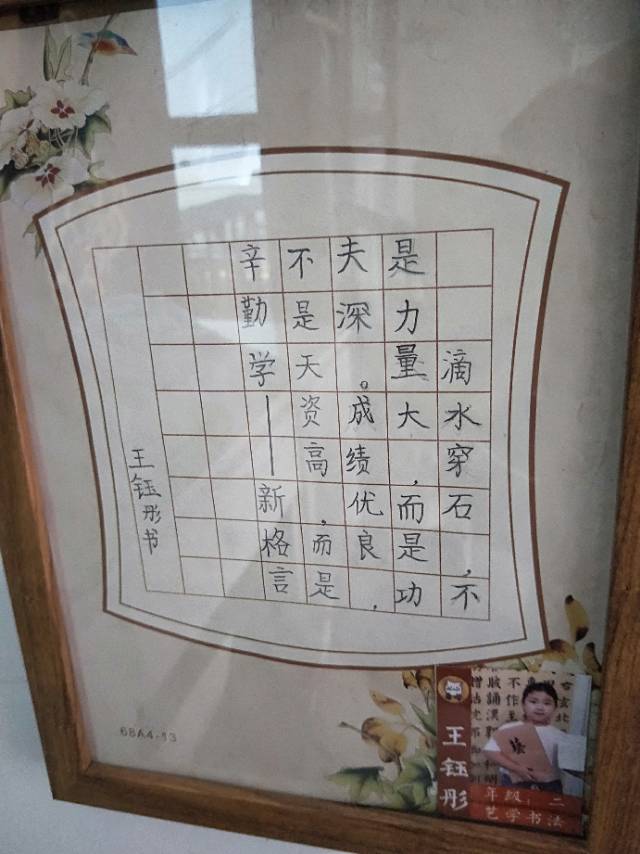 滴水穿石，不
是力量大，而是功
夫深。成绩优良，
不是天资高，而是
辛勤学——新格言
王钰彤书
68A4-13
王钰彤
年级：二
艺学书法